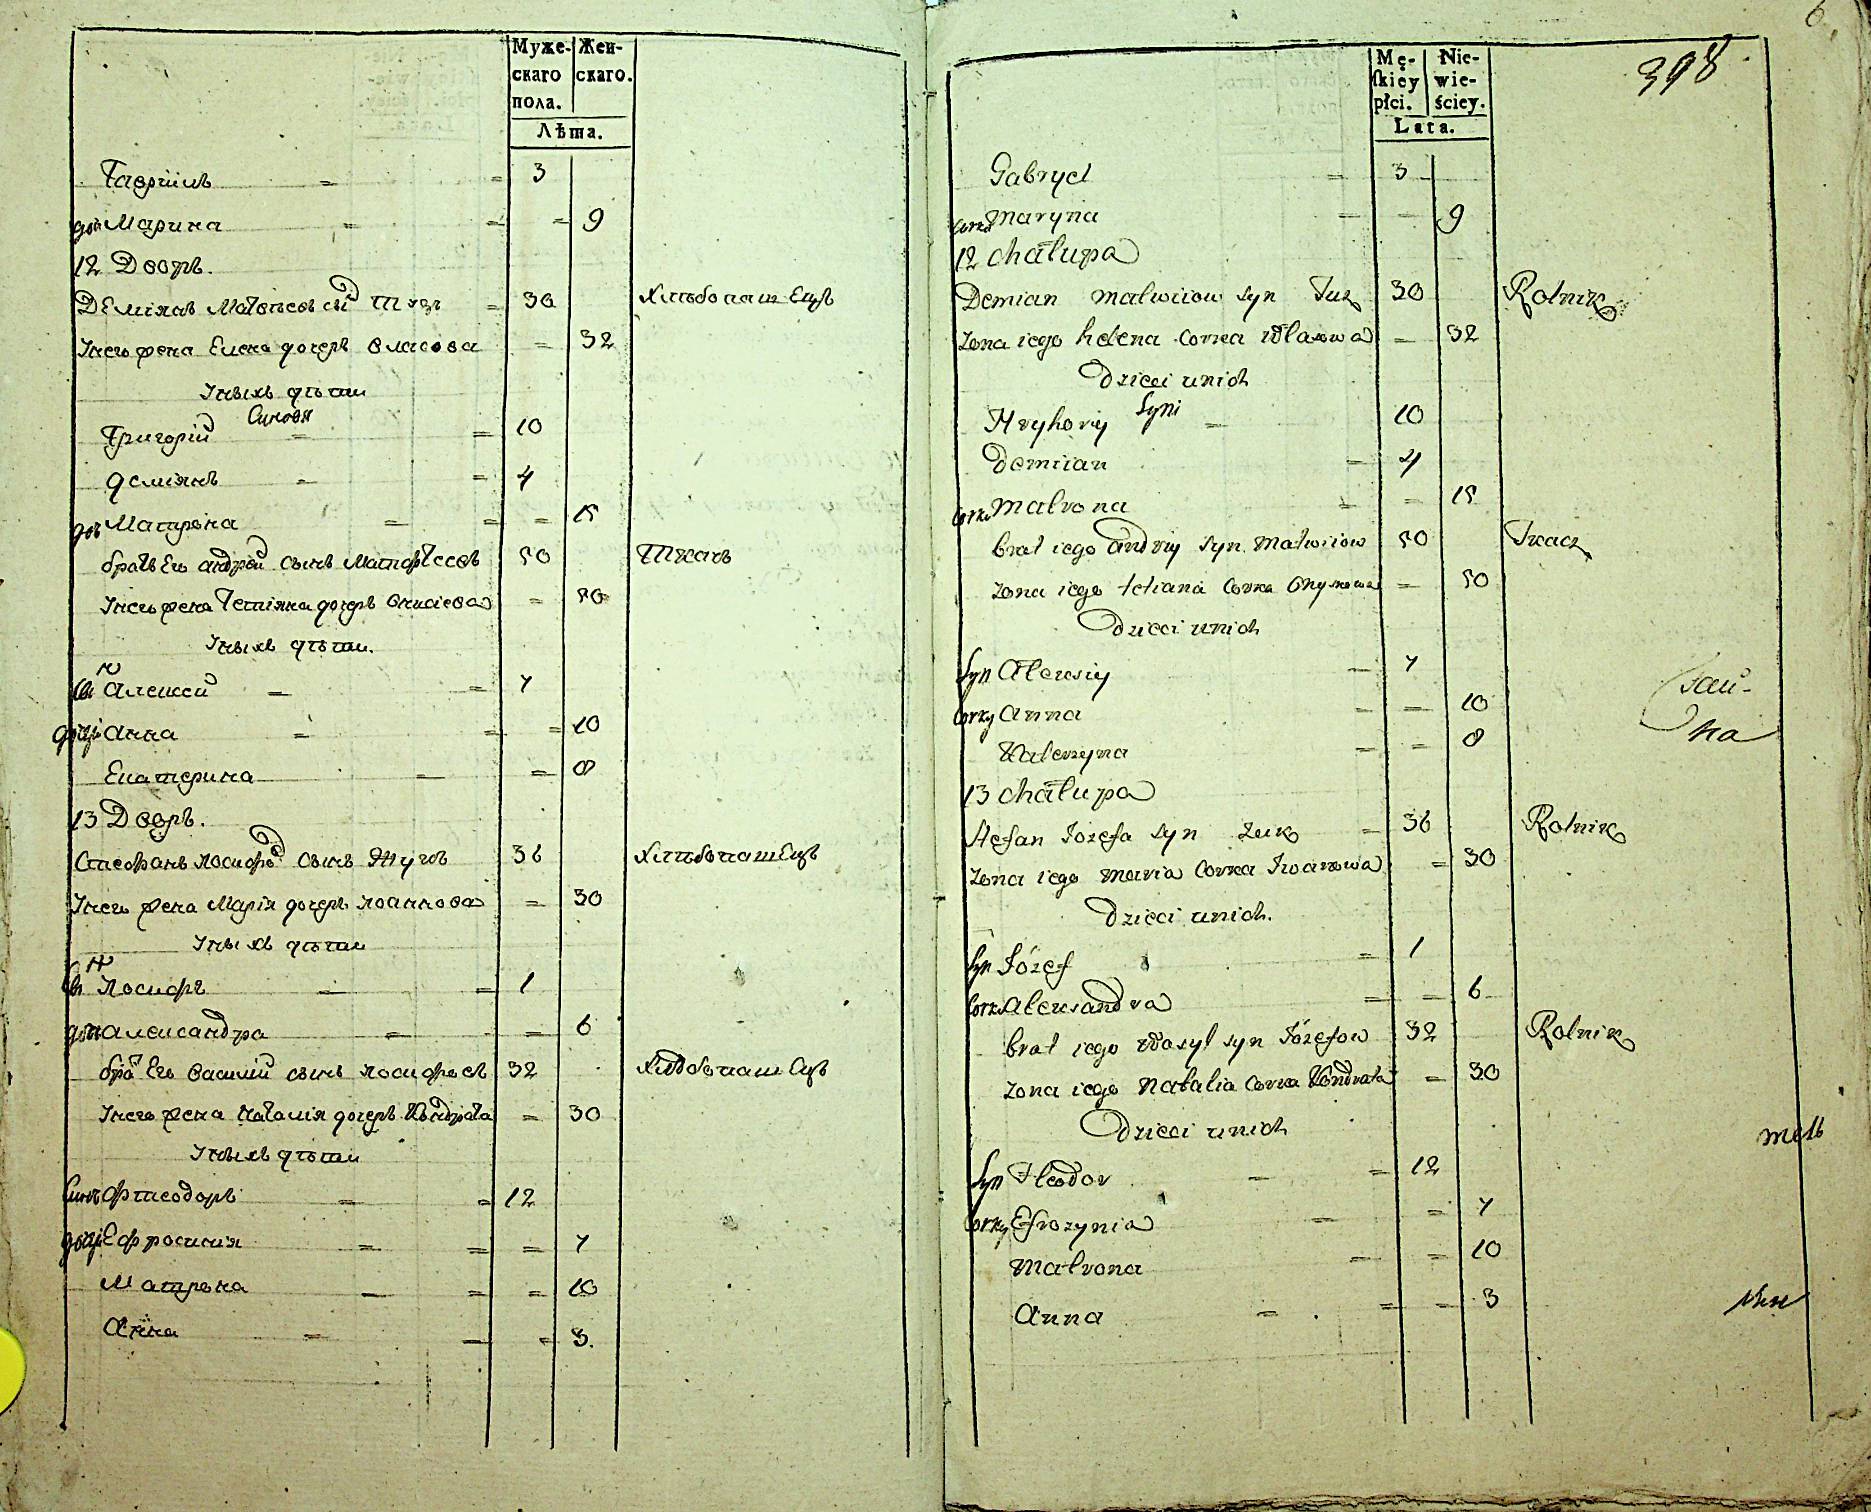 Муже- Жен-
скаго скаго.
пола.
Лѣта.
Гавріилъ = = 3
доч Марина = = = 9
12 Дворъ.
Деміянъ Матвѣевъ сы Ткач = 30 Хлѣбопашецъ
У него жена Елена дочерь Власова = 32
У нихъ дѣти
Синовя
Григорій = = 10
Деміянъ = = 4
доч Матрона = = = 15
братъ Его андрей сынъ Матфѣевъ 50 Ткачъ
У него жена Тетіяна дочерь Онисіева = 50
У нихъ дѣти.
сы Алексей = = 7
дочери Анна = = = 10
Екатерина = = 8
13 Дворъ.
Стефанъ Іосифа сынъ Жукъ 36 Хлѣбопашецъ
У него жена Марія дочерь Іоаннова = 30
У нихъ дѣти
сы Іосифъ = = 1
доч Александра = = 6
бра Его Василій сынъ Іосифовъ 32 Хлѣбопашецъ
У него жена Наталія дочерь Кондрата = 30
У нихъ дѣти
Сынъ Фтеодоръ = = 12
дочери Ефросинія = = = 7
Матрона = = = 10
Анна = = = 3.
6
398
Mę- Nie-
skiey wie-
płci. ściey.
Lata.
Gabryel = 3
corka Maryna = = 9
12 chałupa
Demian Matwiiow syn Tuk 30 Rolnik
Zona iego helena corka Własowa = 32
Dzieci unich
Syni
Hryhory = 10
Demiian = 4
corka Matrona = = 15
brat iego Andriy syn Matwiiow 50 Tkacz
zona iego tetiana corka Onysowa = 50
Dzieci unich
Syn Alexsiy = 7
corky Anna = = 10
Katerzyna = = 8
13 chałupa
Stefan Iozefa syn Zuk = 36 Rolnik
Zona iego maria corka Iwanowa = 30
Dzieci unich.
Syn Iózef = 1
corka Alexsandra = = 6
brat iego Wasyl syn Iózefow 32 Rolnik
zona iego Natalia corka Kondrata = 30
Dzieci unich
Syn Fteodor = = 12
corky Efrozynia = = 7
Matrona = = 10
Anna = = = 3